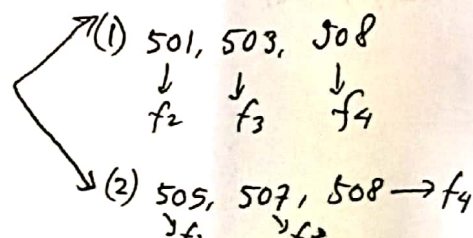 (1) 501, 503, 508
↓ ↓ ↓
f2 f3 f4
(2) 505, 507, 508 → f4